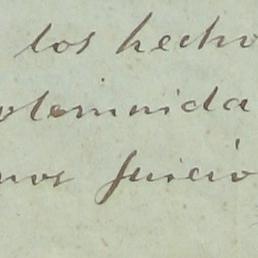 los hecho
olemnida
nos juicio